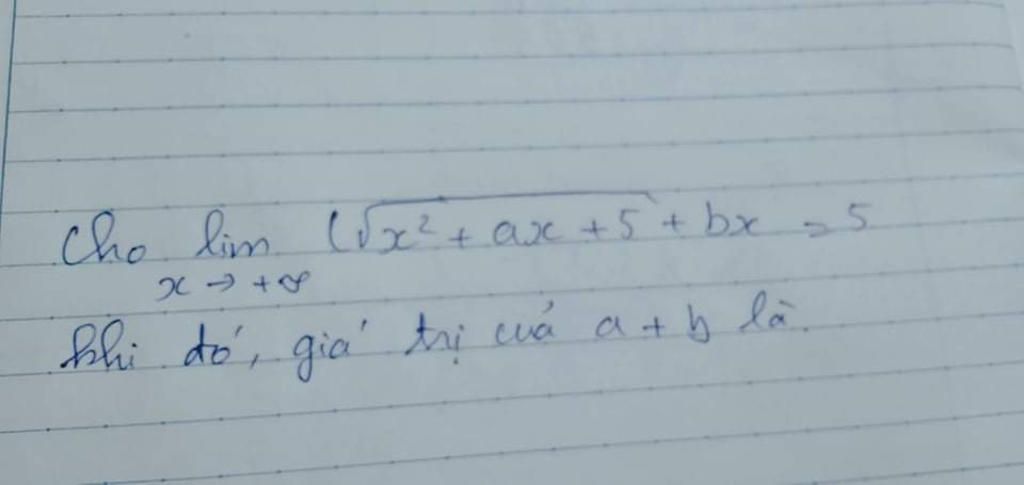 Cho lim (√x² + ax + 5 + bx = 5
x → +∞
Khi đó, giá trị cuả a + b là.